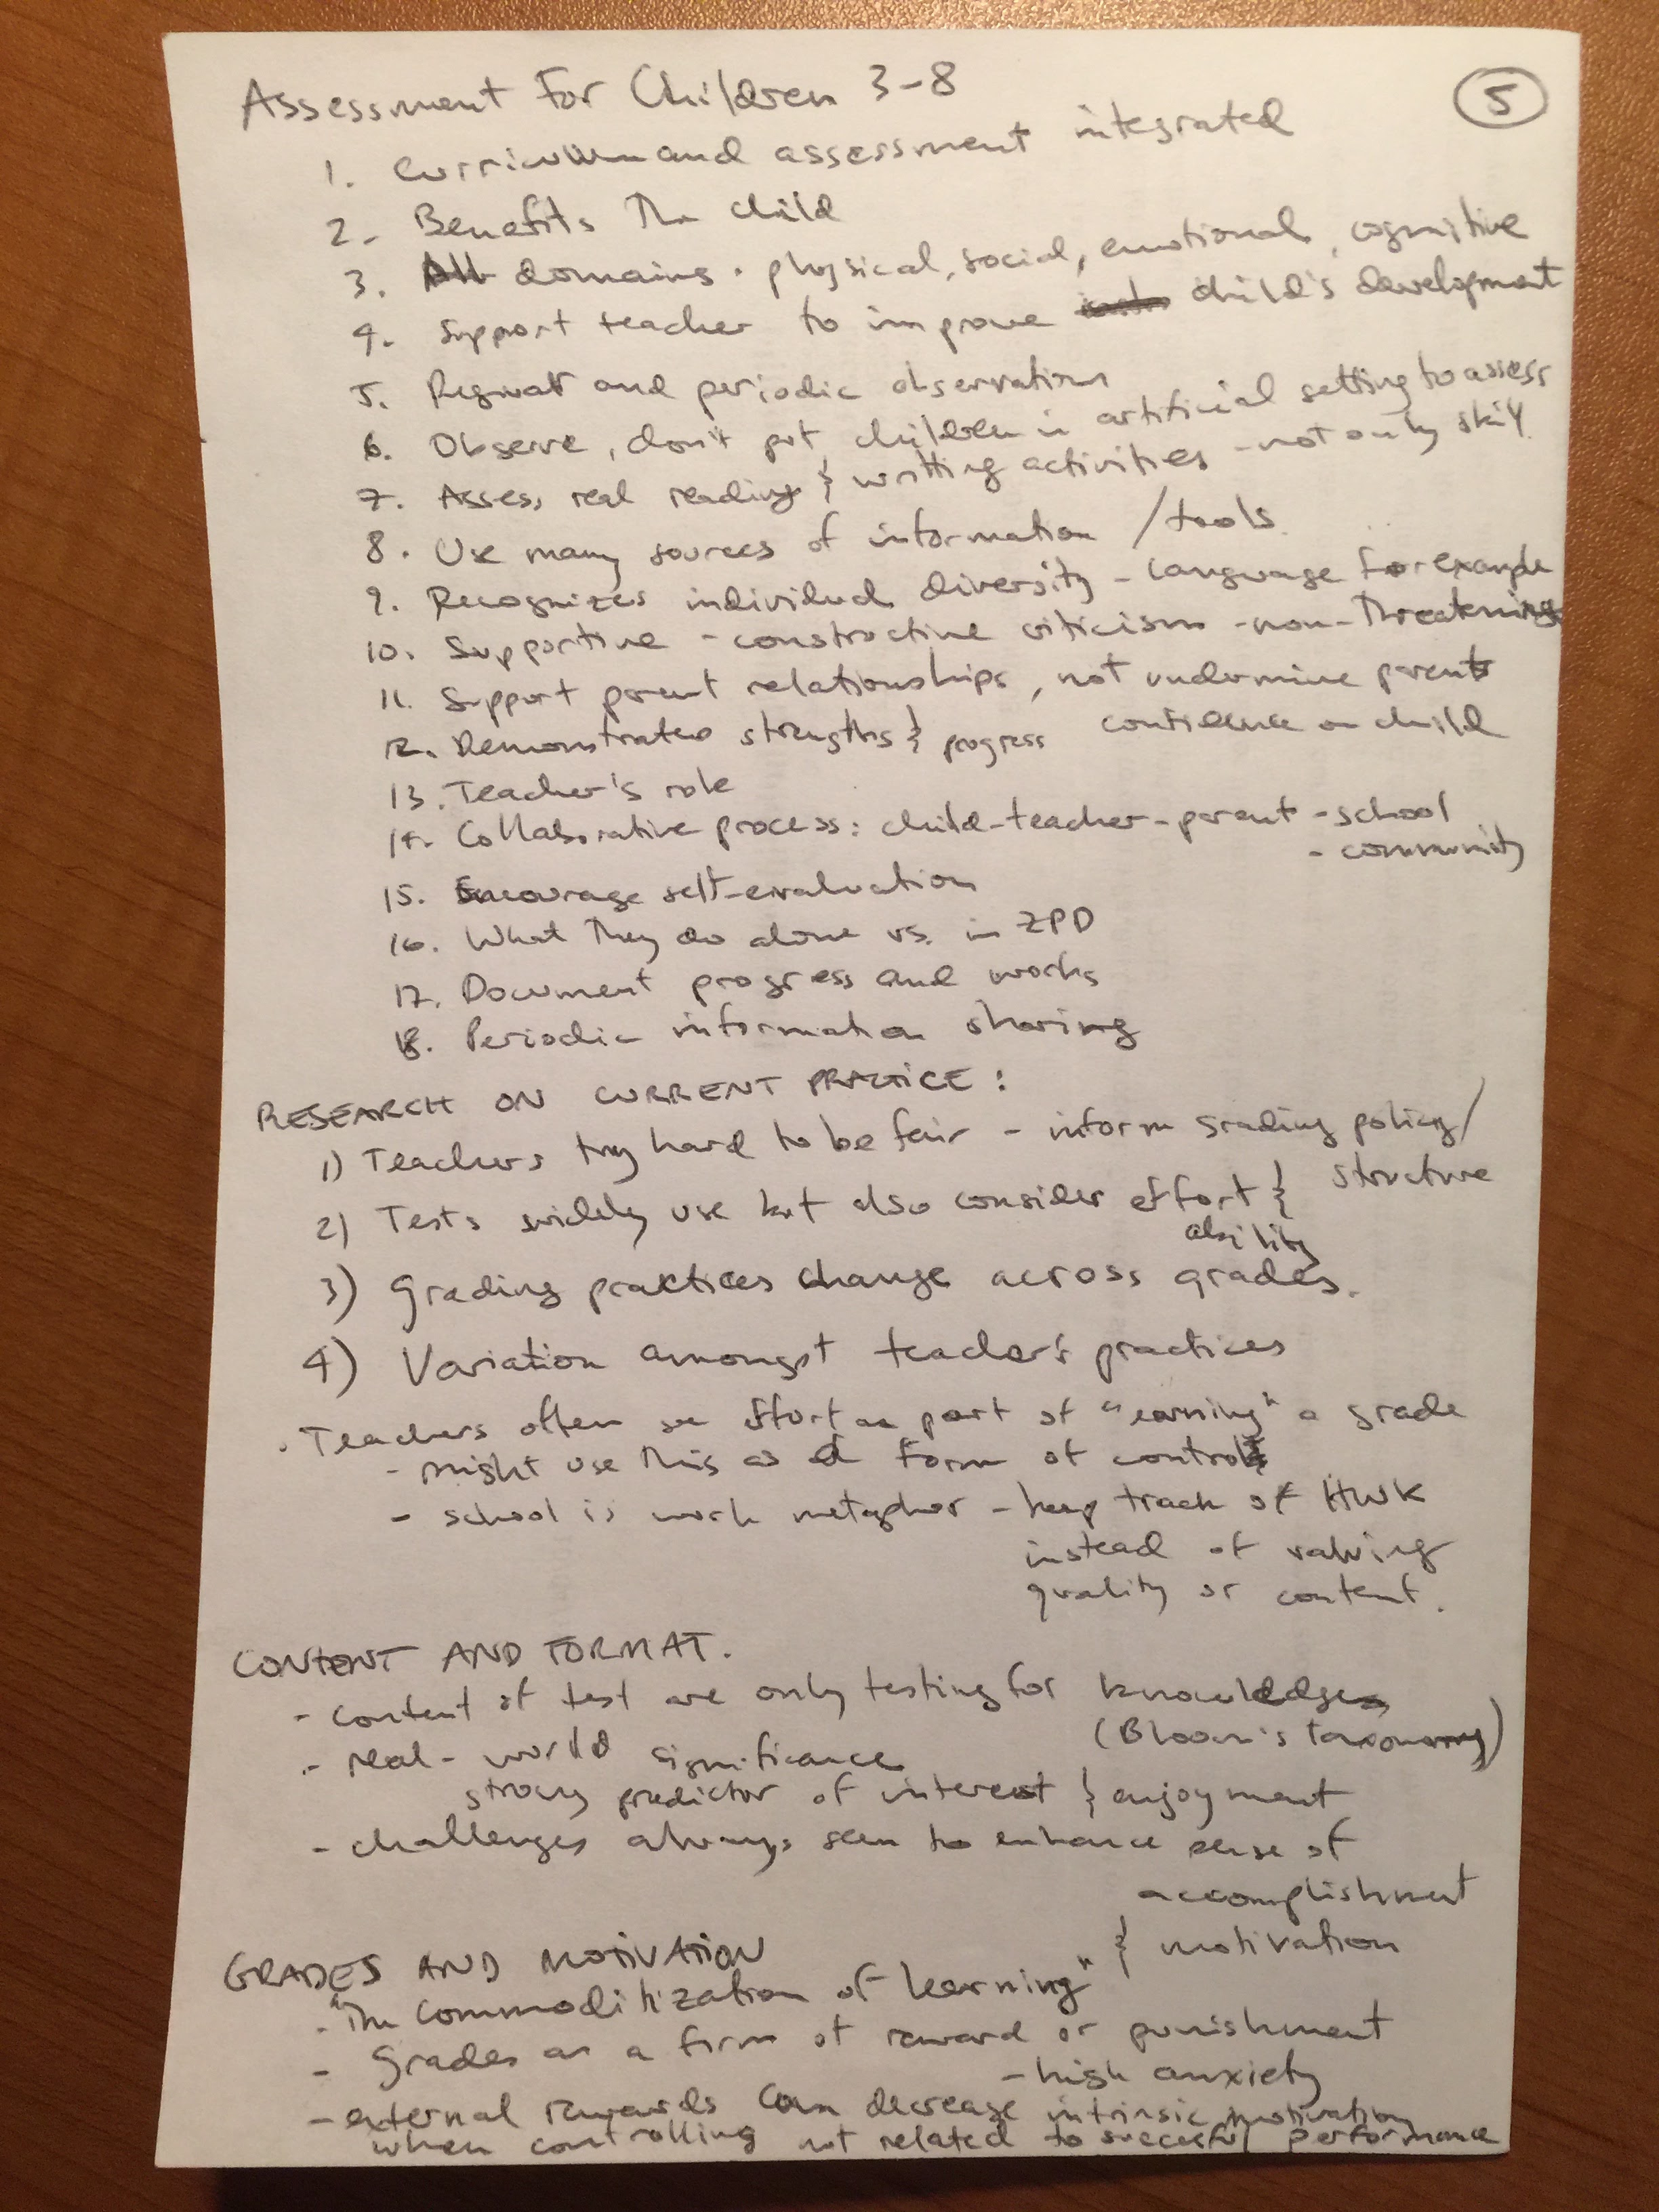 Assessment For Children 3-8
5
1. Curriculum and assessment integrated
2. Benefits The child
3. All domains. physical, social, emotional, cognitive
4. Support teacher to improve child's development
5. Regular and periodic observation
6. Observe, don't put children in artificial setting to assess
7. Assess real reading & writting activities - not only skill
8. Use many sources of information / tools.
9. Recognizes individual diversity - language for example
10. Supportive - constructive criticism - non-Threatening
11. Support parent relationships, not undermine parents
confidence on child
12. Demonstrates strengths & progress
13. Teacher's role
14. Collaborative process: child-teacher-parent - school
- community
15. Encourage self-evaluation
16. What They do alone vs. in ZPD
17. Document progress and works
18. Periodic information sharing
RESEARCH ON CURRENT PRACTICE:
1) Teachers try hard to be fair - inform grading policy/
structure
2) Tests widely use but also consider effort &
ability
3) Grading practices change across grades.
4) Variation amongst teacher's practices
. Teachers often see effort as part of "earning" a grade
- might use This as a form of control
- school is work metaphor - keep track of HWK
instead of valuing
quality or content.
CONTENT AND FORMAT.
- Content of test are only testing for knowledge
(Bloom's taxonomy)
- real-world significance
strong predictor of interest & enjoyment
- challenges always seen to enhance sense of
accomplishment
& motivation
GRADES AND MOTIVATION
. "The Commoditization of learning"
- Grades as a form of reward or punishment
- high anxiety
- external rewards can decrease intrinsic motivation
when controlling not related to succesful performance